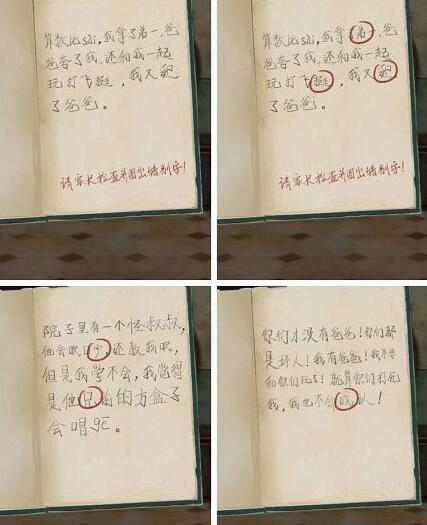 算数比sai,我拿了弟一.爸
爸夸了我,还和我一起
玩打飞挺,我又
了爸爸。
请家长检查并圈出错别字!
算数比sai,我拿了弟一.爸
爸夸了我,还和我一起
玩打飞挺,我又
了爸爸。
请家长检查并圈出错别字!
院子里有一个怪叔叔,
他会吹口今,还教我吹,
但是我学不会,我觉得
是他兄 的方盒子
会唱gē。
你们才没有爸爸!你们都
是坏人!我有爸爸!我不要
和你们玩了!就算你们打死
我,我也不会成认!